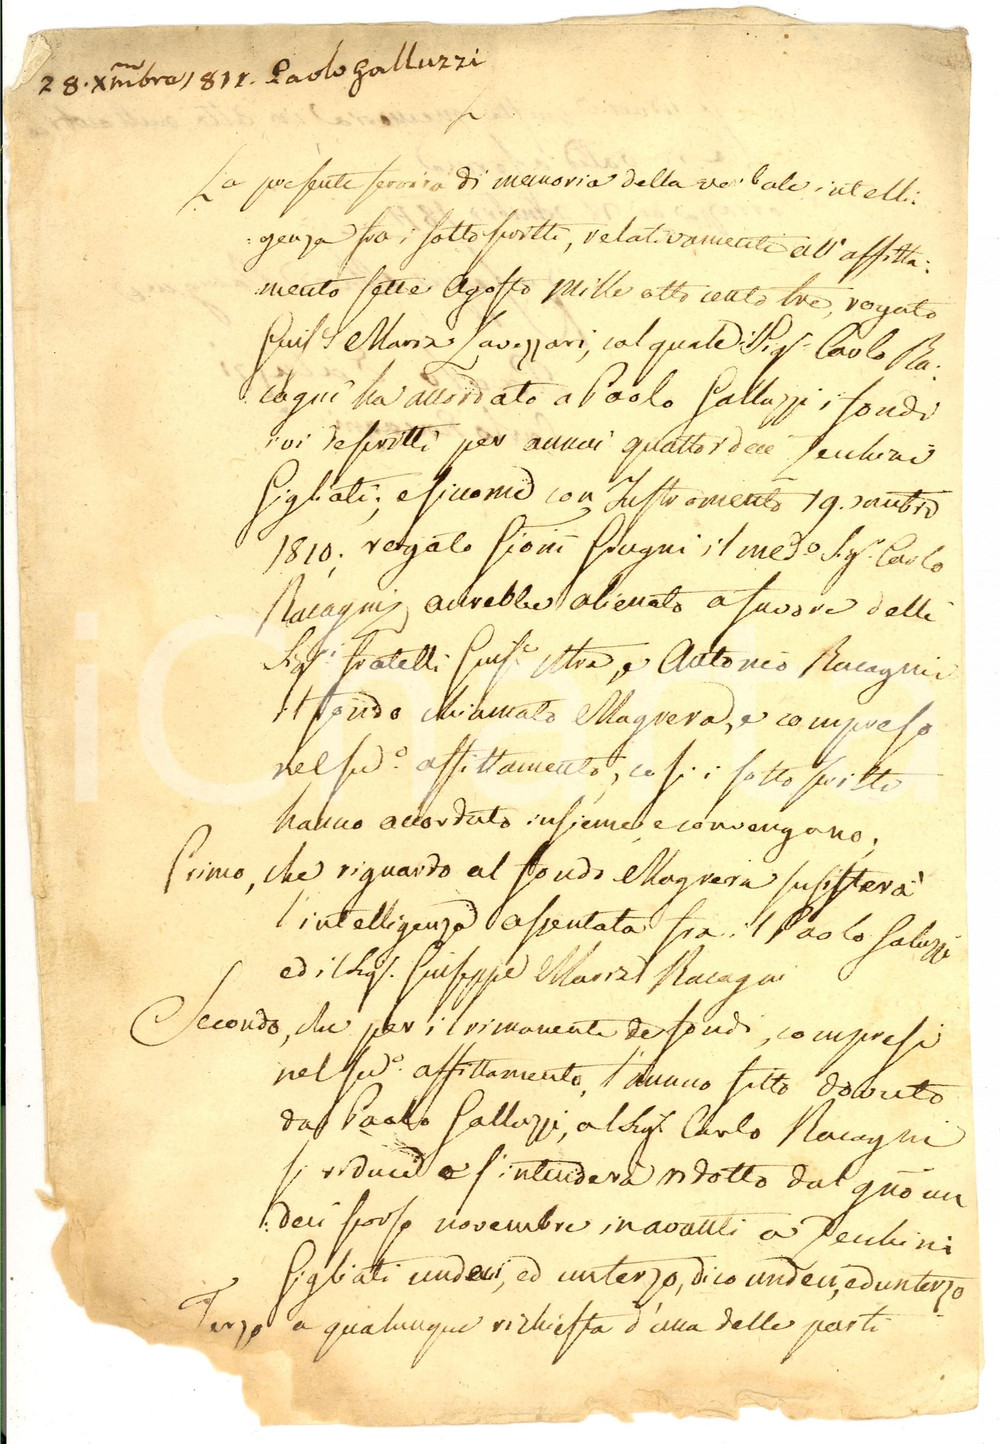 28. Xmbre 1811. Paolo Galluzzi
La presente servirà di memoria della verbale intelli:
:genza fra i sottoscritti, relativamente all' affitta:
:mento sette Agosto Mille ottocento tre, rogato
Giusᵉ Maria Lavezzari, col quale il Sigʳ. Carlo Ra:
:cagni ha accordato a Paolo Galluzzi i fondi
ivi descritti per annui quattordeci Zecchini
Gigliati; e siccome con Instromento 19. 
1810. rogato Giugni il medᵒ Sigʳ. Carlo
Racagni, avrebbe alienato a favore delli
Sigʳⁱ Fratelli Giusᵉ Mra, e Antonio Racagni
il fondo chiamato Magrera, e compreso
nel sudᵒ. affittamento, così i sottoscritti
hanno accordato insieme, e convengono;
Primo, che riguardo al fondo Magrera sussisterà
l'intelligenza assentata fra il Paolo Galuzzi
ed il Sigʳ. Giuseppe Maria Racagni
Secondo, che per il rimanente de fondi, compresi
nel sudᵒ. affittamento, l'annuo fitto dovuto
da Paolo Galluzzi, al Sigʳ Carlo Racagni
si riduce e s'intenderà ridotto dal gno un
:deci scorso novembre inavanti a Zecchini
Gigliati undeci, ed un terzo, dico undeci, ed un terzo
Terzo a qualunque richiesta d'una delle parti